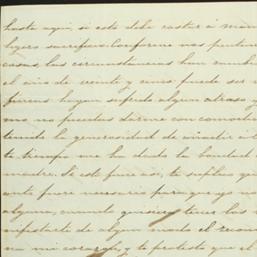 hasta aqui, si esto debe costar á mi
ligero sacrificio. Conforme nos
cosas, las circunstancias han
el año de veinte y cinco puede ser
fueron hayan sufrido algun atraso y
ma no puedas darme con comodi
tenido la generosidad de
te tiempo me ha dado la bondad
madre. Si esto fuere asi, te suplico q
ante fuere necesario para que yo no
alguna, cuando quisieres tener las
nifestarte de algun modo el recono
na mi corazon, y te protesto que el